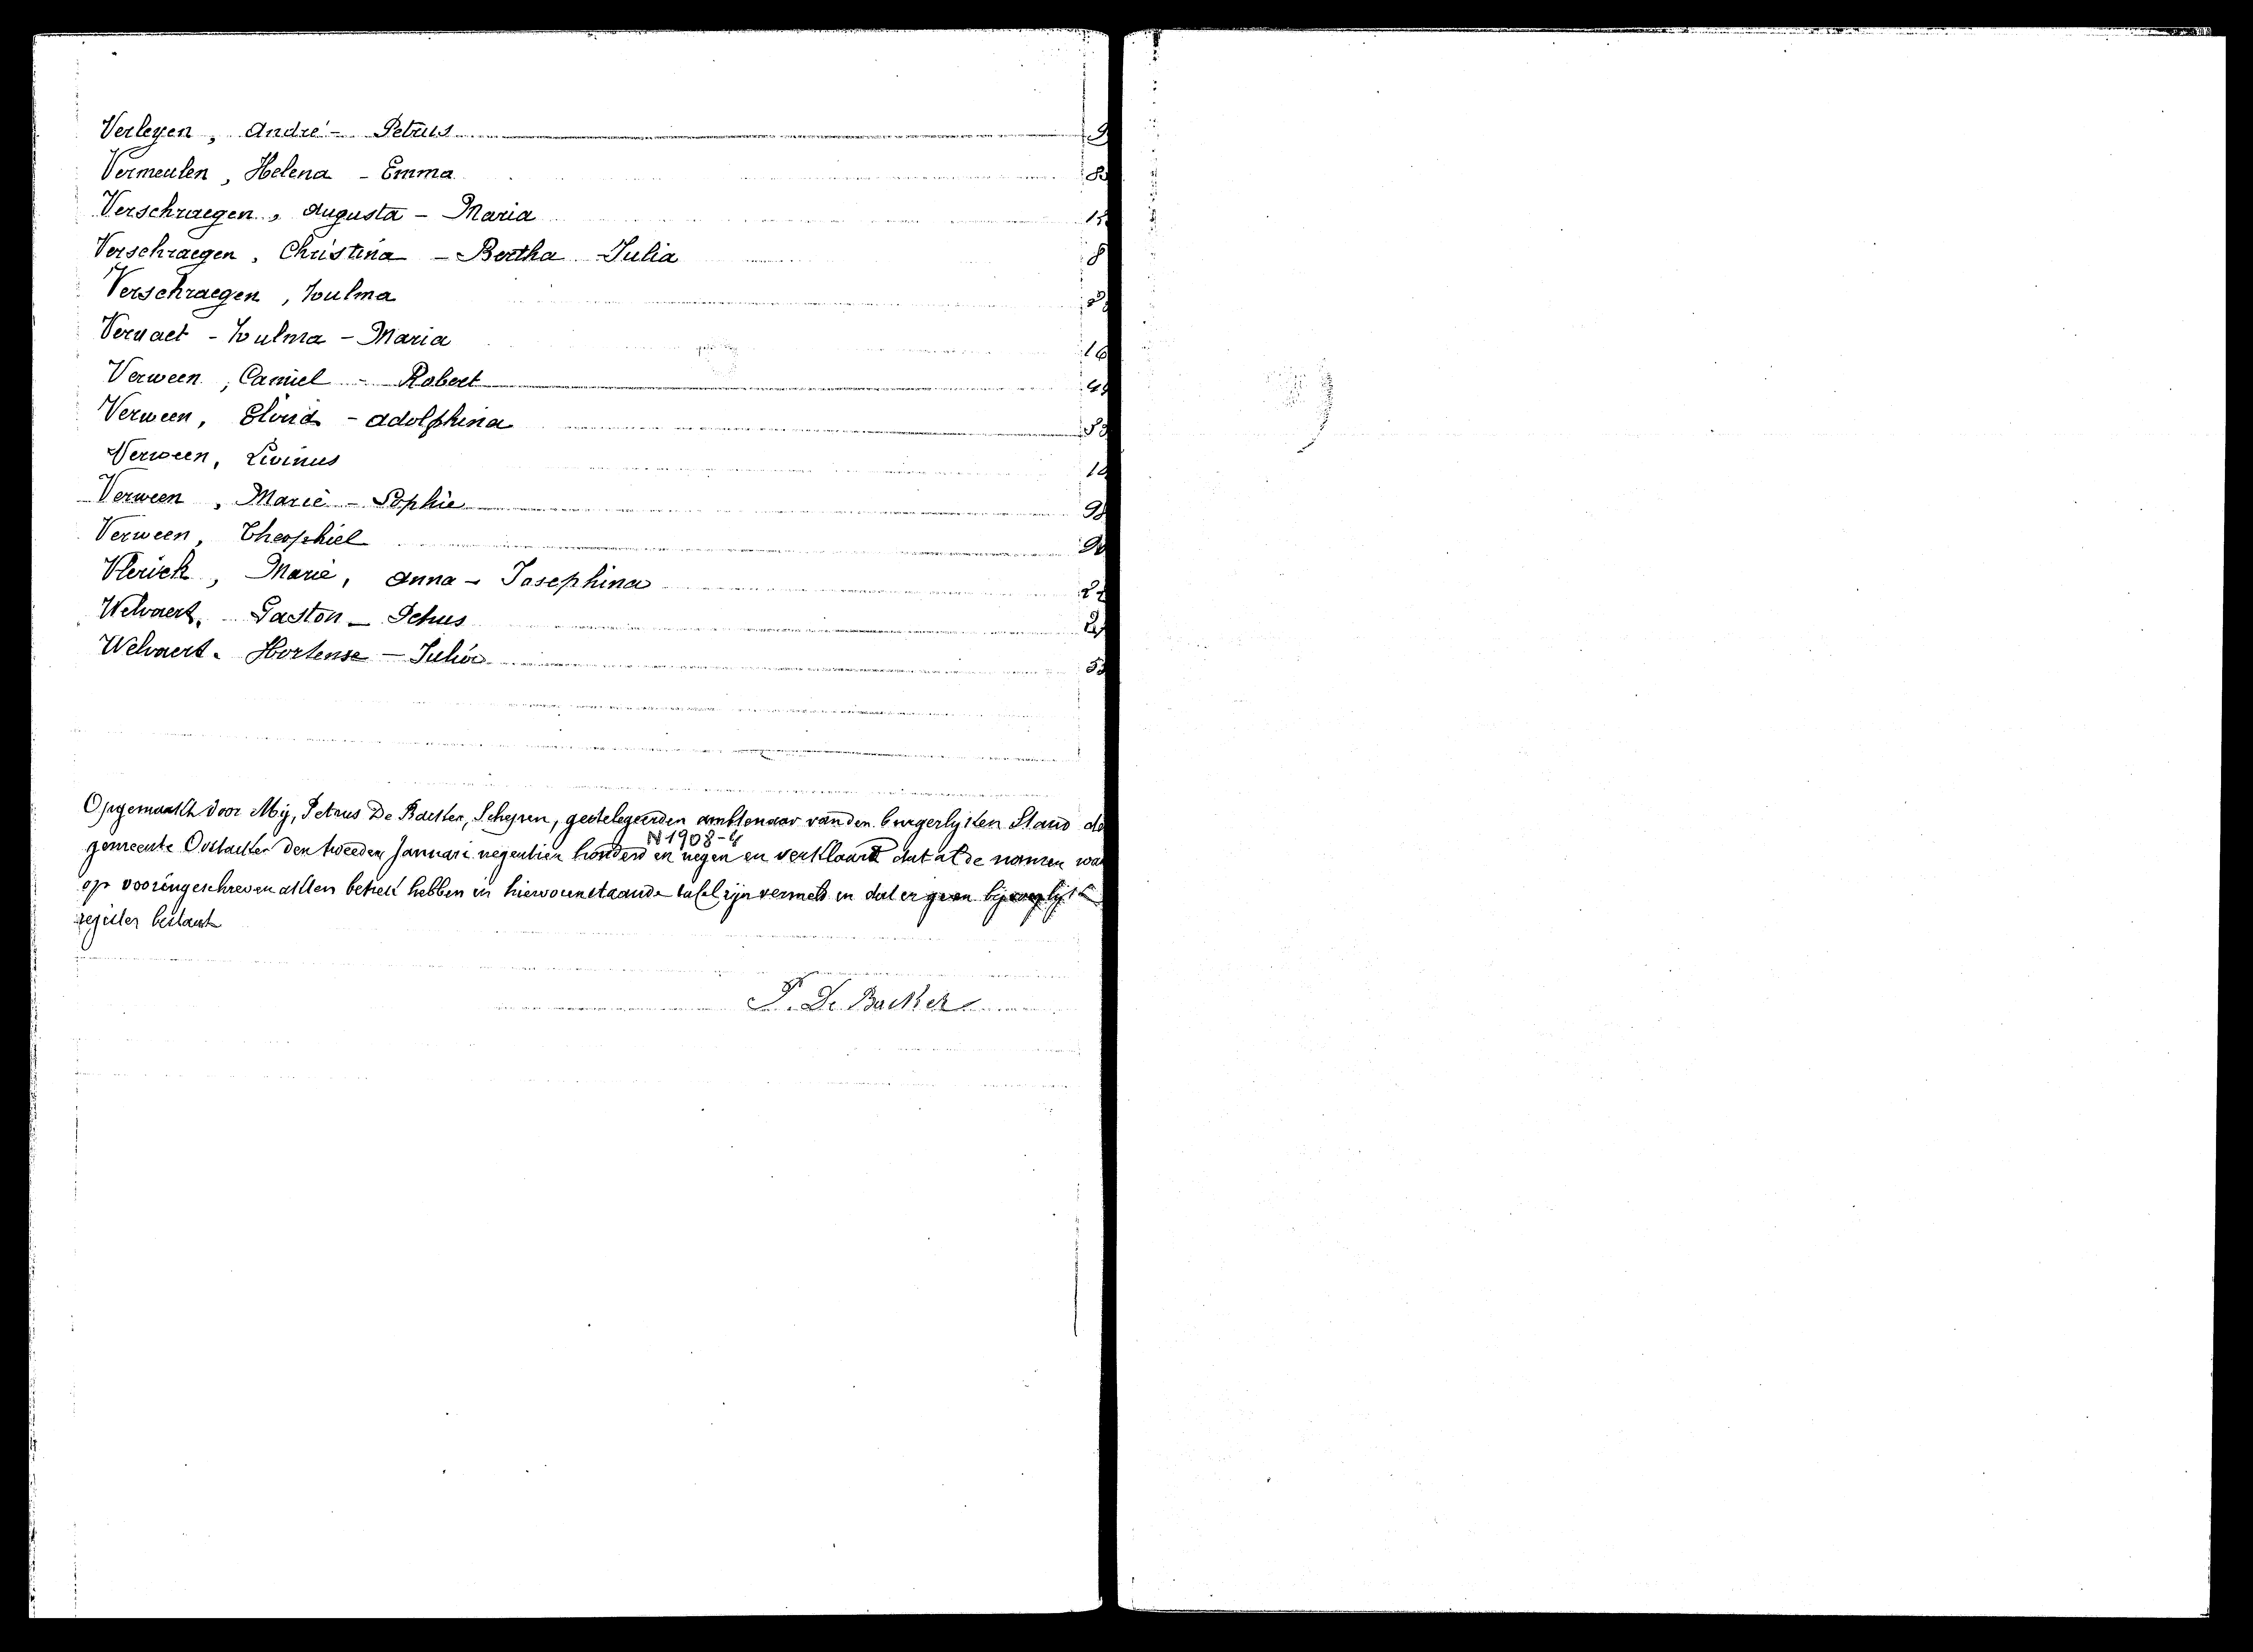 Verleyen, André - Petrus 9
Vermeulen, Helena - Emma 8
Verschraegen, Augusta - Maria 1
Verschraegen, Christina - Bertha Julia 8
Verschraegen, Zulma
Vervaet - Zulma - Maria 16
Verween, Camiel - Robert 4
Verween, Elvira - Adolphina
Verween, Livinus 1
Verween, Marie - Sophie 9
Verween, Theophiel 9
Vlerick, Marie, Anna - Josephina 2
Welvaert, Gaston - Petrus 2
Welvaert. Hortense - Julia 5
Opgemaakt door Mij, Petrus De Backer, Schepen, gedelegeerden ambtenaar van den burgerlijken Stand de
N 1908-4
gemeente Oostacker den tweeden Januari negentien honderd en negen en verklaard dat al de namen wa
op vooringeschreven akten betrek hebben in hierovenstaande tafel zijn vermeld en dat er geen bijvoeglijk
register bestaat
P. De Backer